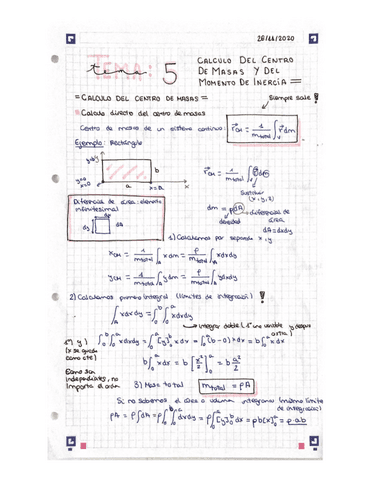 28/11/2020
Tema: 5
CALCULO DEL CENTRO
DE MASAS Y DEL
MOMENTO DE INERCIA
= CALCULO DEL CENTRO DE MASAS =
Siempre sale !
Calculo directo del centro de masas
Centro de masas de un sistema continuo:
r⃗CM = 1/mtotal ∫ r⃗ dm
Ejemplo: Rectángulo
y=b
b
y=0
x=0
a
x=a
x
r⃗CM = 1/mtotal ∫ r⃗ dm
(x, y, z)
dm = ρ dA → diferencia de
densidad
área
dA = dxdy
Diferencia de área: elemento
infinitesimal
dy
dA
dx
1) Calculamos por separado x, y
xCM = 1/mtotal ∫A x dm = ρ/mtotal ∫A x dxdy
yCM = 1/mtotal ∫A y dm = ρ/mtotal ∫A y dxdy
2) Calculamos primero integral (límites de integración) !
∫A x dxdy = ∫0^a ∫0^b x dxdy
Integrar doble (1º una variable y después
otra)
1º) y )
(x se queda
como cte)
∫0^a ∫0^b x dxdy = ∫0^a [y]0^b x dx = ∫0^a (b-0) x dx = b ∫0^a x dx
b ∫0^a x dx = b [x²/2]0^a = b a²/2
Como son
independientes, no
importa el orden
3) Masa total
mtotal = ρA
Si no sabemos el área o volumen integramos (mismos límites
de integración)
ρA = ρ∫dA = ρ∫0^a ∫0^b dxdy = ρ∫0^a [y]0^b dx = ρb[x]0^a = ρ·ab